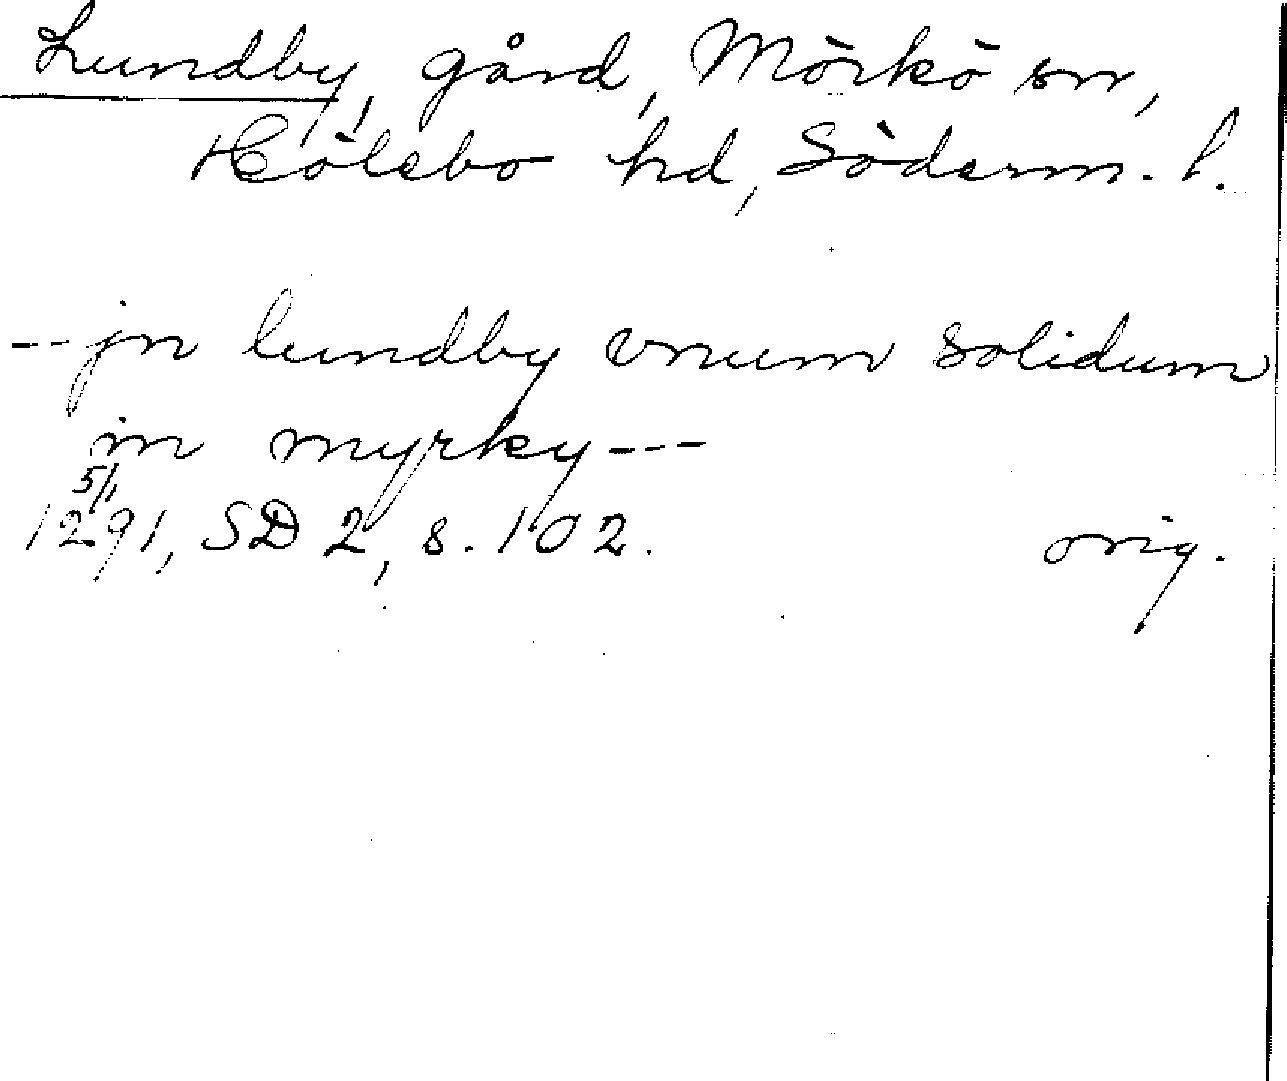 Lundby, gård, Mörkö sn,
Hölebo hd, Söderm. l.
--jn lundby vnum solidum
in myrky---
5/1
1291, SD 2, s. 102. orig.